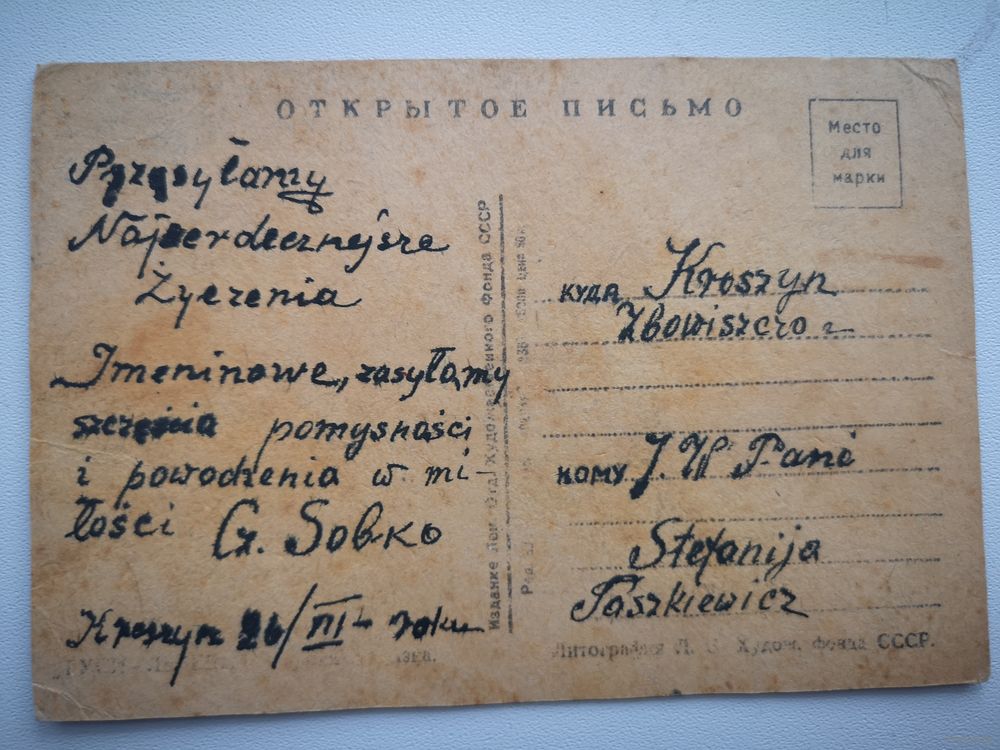 ОТКРЫТОЕ ПИСЬМО
Место
для
марки
Przesyłamy
Najserdecznejsze
Życzenia
Imeninowe, zasyłamy
szczęścia pomysności
i powodzenia w mi-
łości Cz. Sobko
Kroszyn 26/III- roku
Издание Лен. Отд. Художественного Фонда СССР
куда Kroszyn
Zbowiszczo
кому J. W. Pani
Stefanija
Paszkiewicz
Литография Л. О. Худож. фонда СССР.